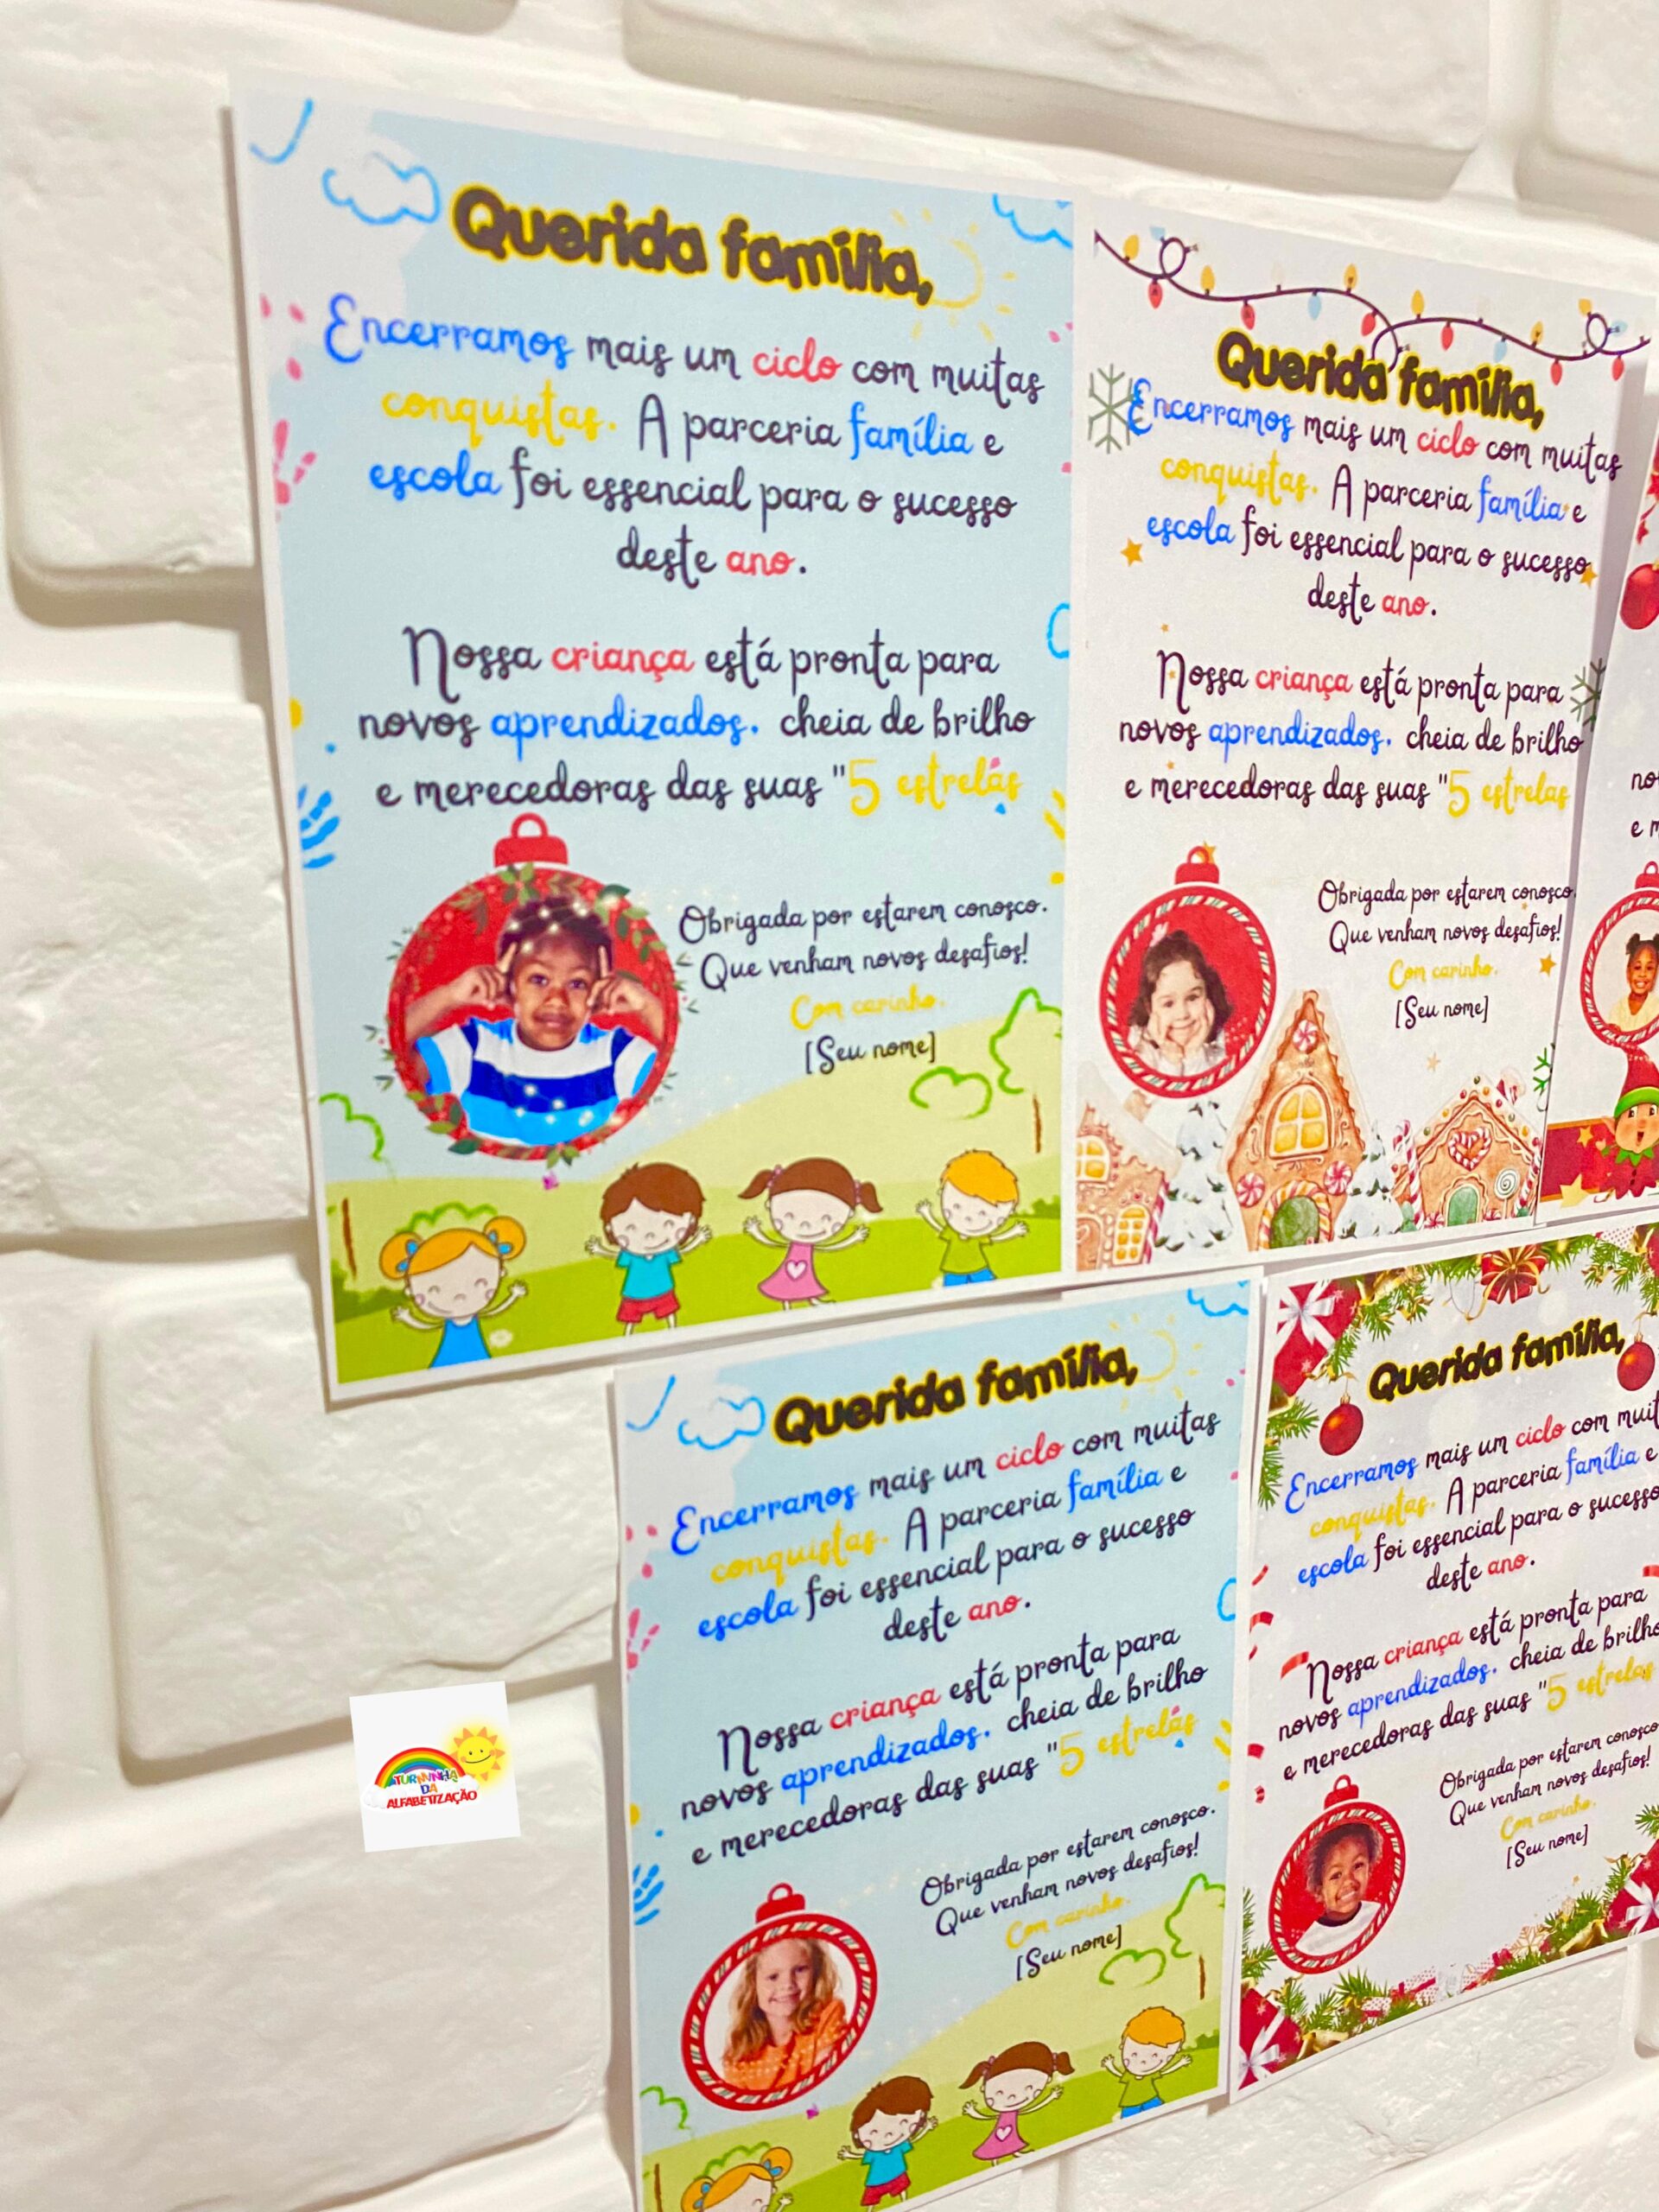 Querida família,
Encerramos mais um ciclo com muitas
conquistas. A parceria família e
escola foi essencial para o sucesso
deste ano.
Nossa criança está pronta para
novos aprendizados, cheia de brilho
e merecedoras das suas "5 estrelas
Obrigada por estarem conosco.
Que venham novos desafios!
Com carinho,
[Seu nome]
Querida família,
Encerramos mais um ciclo com muitas
conquistas. A parceria família e
escola foi essencial para o sucesso
deste ano.
Nossa criança está pronta para
novos aprendizados, cheia de brilho
e merecedoras das suas "5 estrelas
Obrigada por estarem conosco.
Que venham novos desafios!
Com carinho,
[Seu nome]
no
e m
Querida família,
Encerramos mais um ciclo com muitas
conquistas. A parceria família e
escola foi essencial para o sucesso
deste ano.
Nossa criança está pronta para
novos aprendizados, cheia de brilho
e merecedoras das suas "5 estrelas
Obrigada por estarem conosco.
Que venham novos desafios!
Com carinho,
[Seu nome]
Querida família,
Encerramos mais um ciclo com muit
conquistas. A parceria família e
escola foi essencial para o sucesso
deste ano.
Nossa criança está pronta para
novos aprendizados, cheia de brilho
e merecedoras das suas "5 estrelas
Obrigada por estarem conosco
Que venham novos desafios!
Com carinho,
[Seu nome]
TURMINHA
DA
ALFABETIZAÇÃO